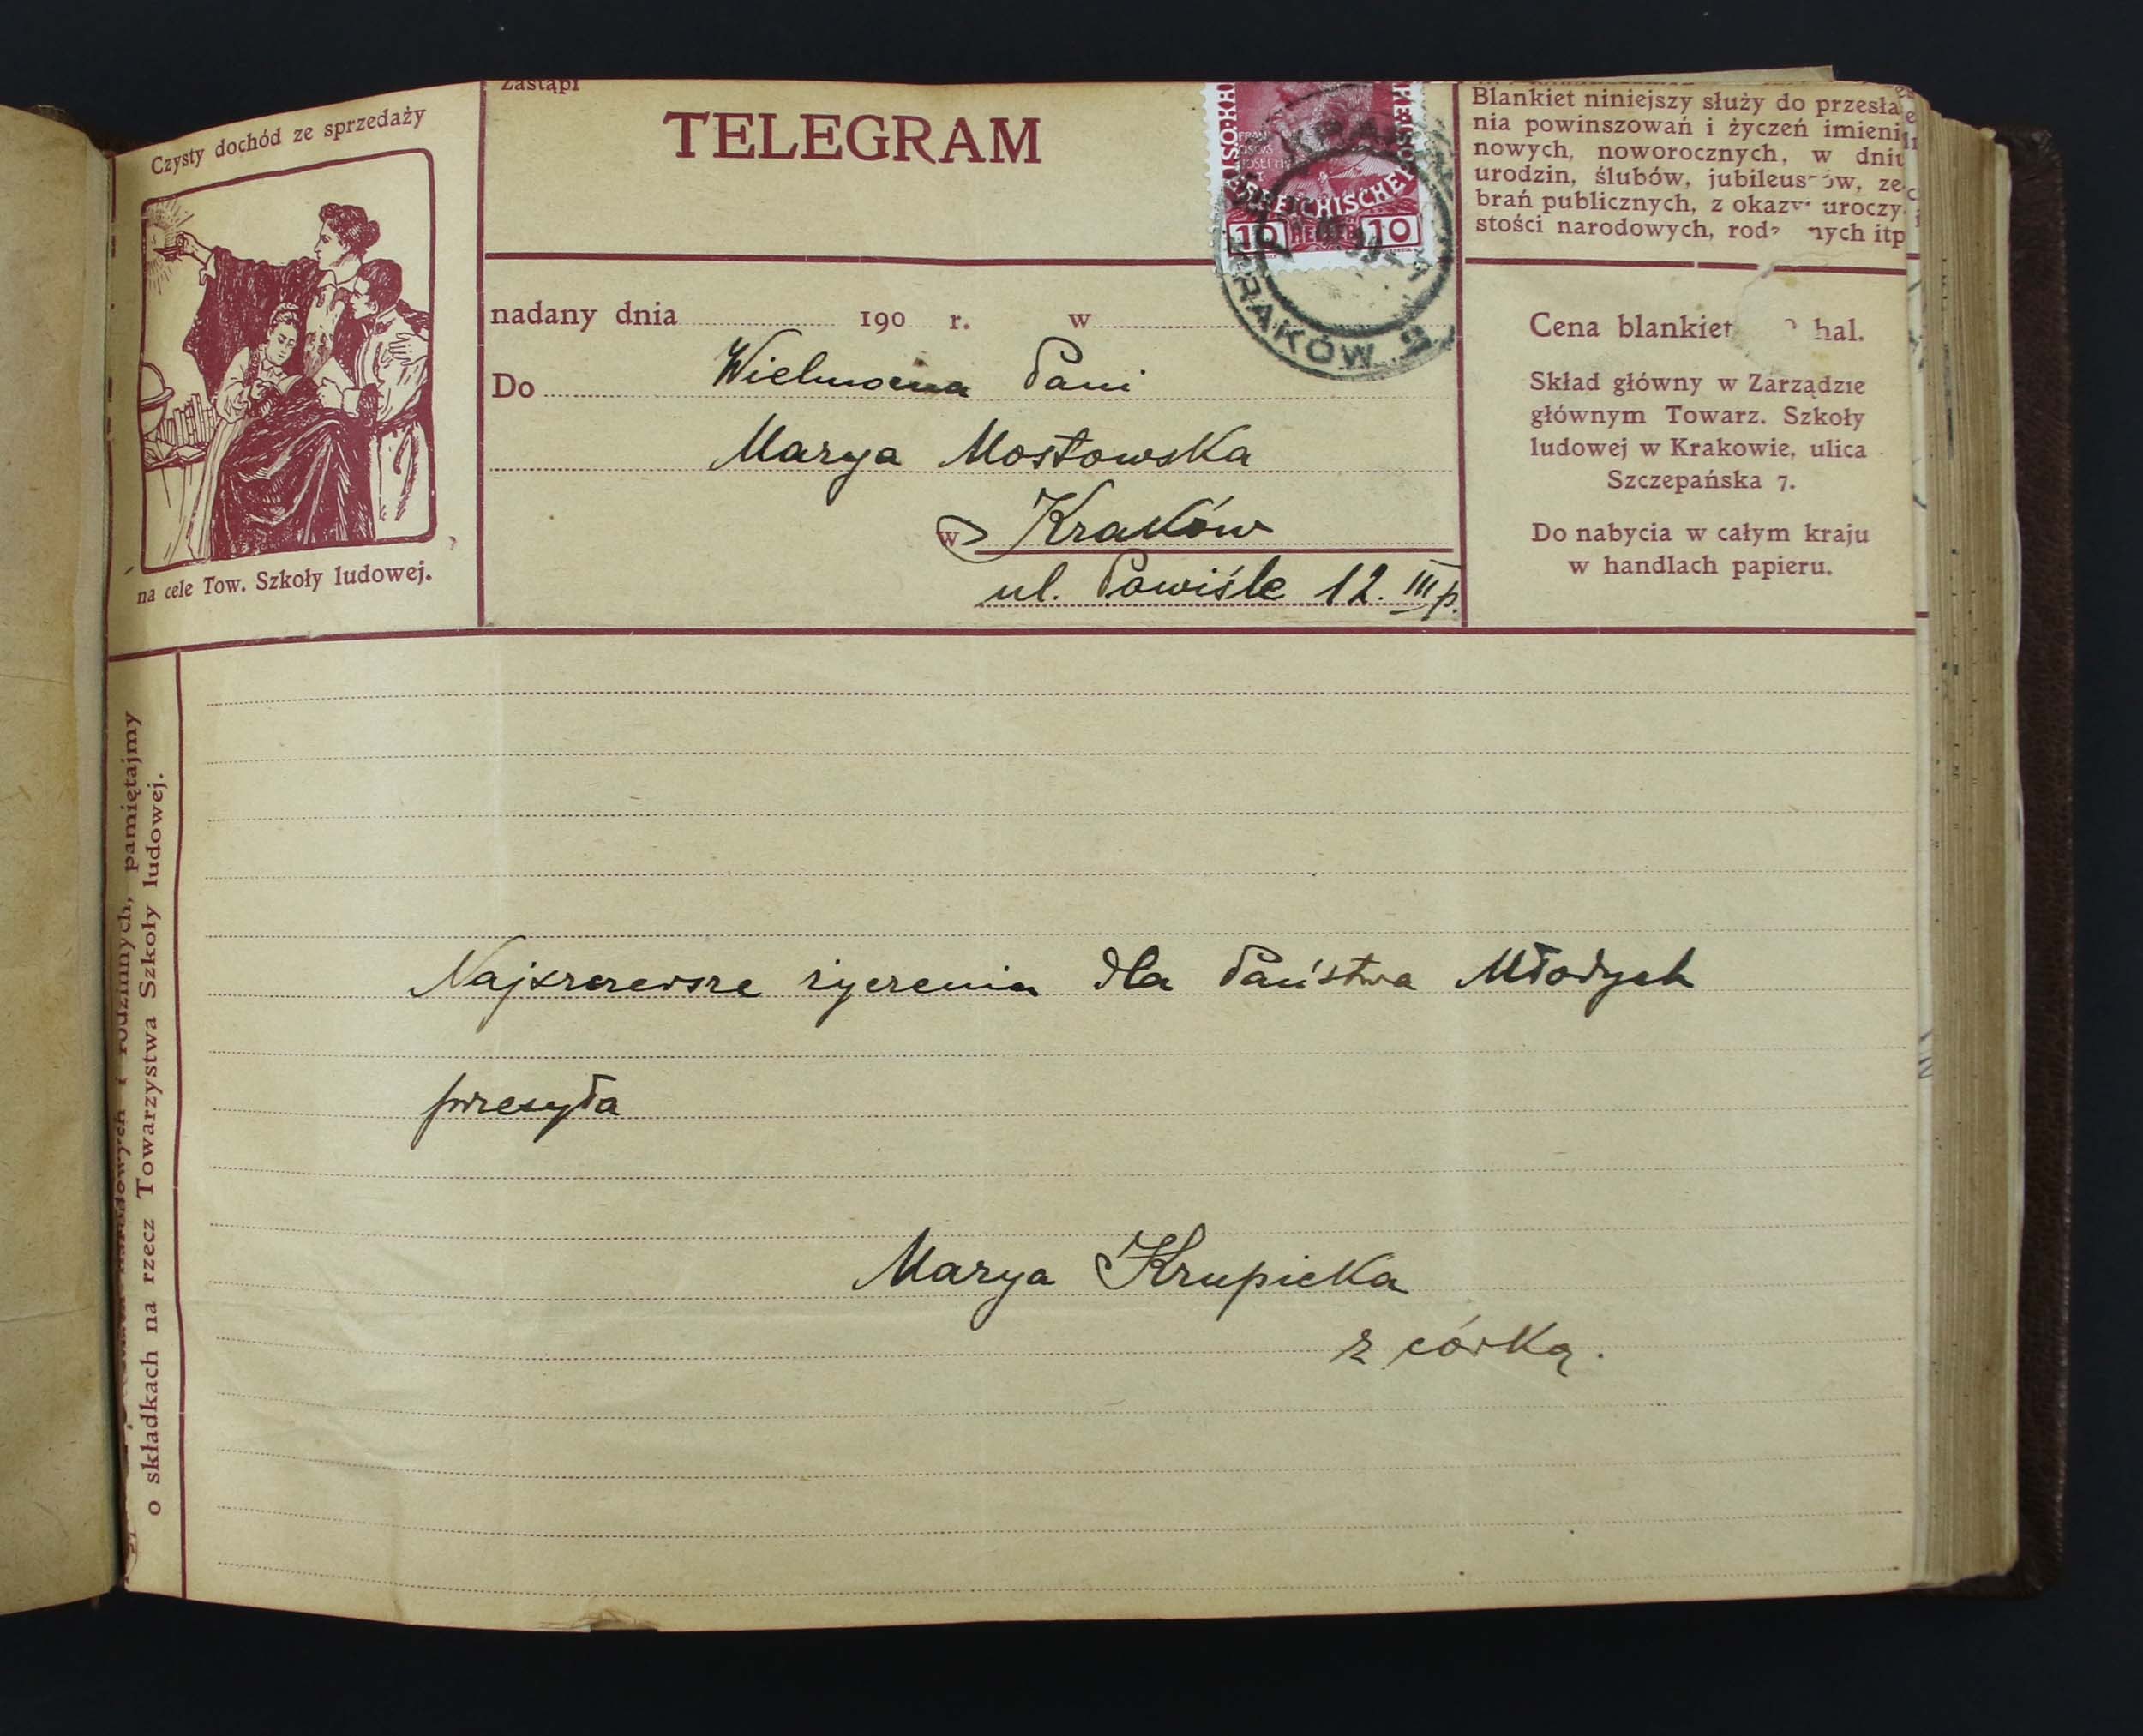 Czysty dochód ze sprzedaży
na cele Tow. Szkoły ludowej.
Zastąpi
TELEGRAM
nadany dnia 190 r. w
Do Wielmożna Pani
Marya Mostowska
w Kraków
ul. Powiśle 12. III p.
10 HELLER 10
KRAKÓW 2
Blankiet niniejszy służy do przesła
nia powinszowań i życzeń imieni
nowych, noworocznych, w dniu
urodzin, ślubów, jubileuszów, ze
brań publicznych, z okazyi uroczy
stości narodowych, rodz nnych itp
Cena blankiet hal.
Skład główny w Zarządzie
głównym Towarz. Szkoły
ludowej w Krakowie, ulica
Szczepańska 7.
Do nabycia w całym kraju
w handlach papieru.
narodowych i rodzinnych, pamiętajmy
o składkach na rzecz Towarzystwa Szkoły ludowej.
Najszczersze życzenia dla Państwa Młodych
przesyła
Marya Krupicka
z córką.